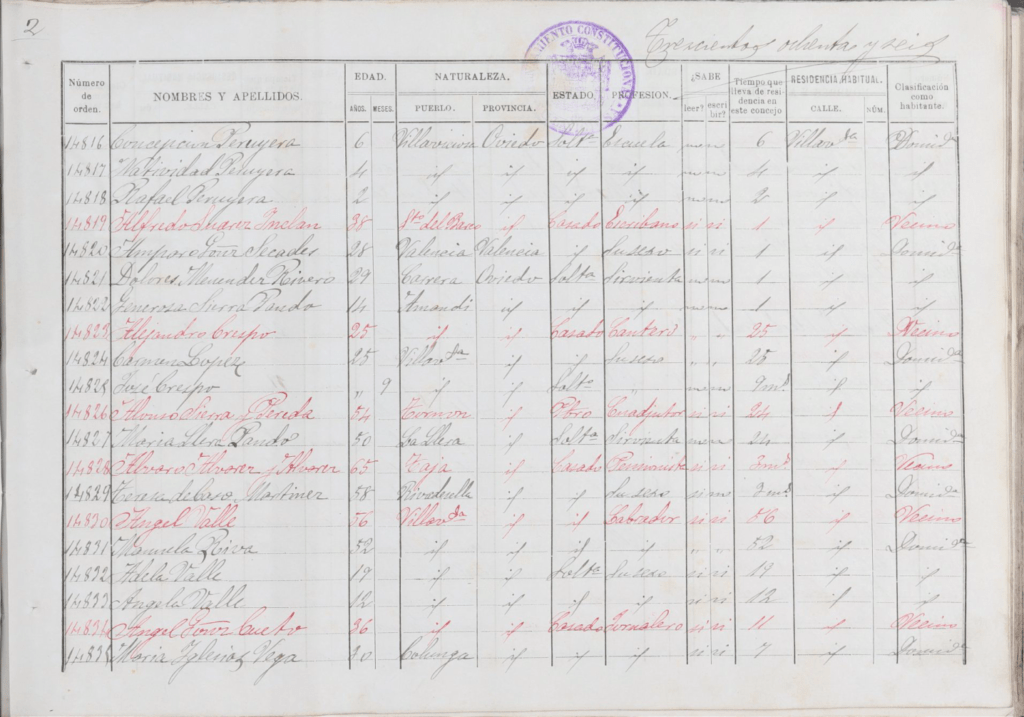 2
Trescientos ochenta y seis
AYUNTAMIENTO CONSTITUCIONAL
Número de orden. NOMBRES Y APELLIDOS. EDAD. AÑOS. MESES. NATURALEZA. PUEBLO. PROVINCIA. ESTADO. PROFESION. ¿SABE leer? escribir? Tiempo que lleva de residencia en este concejo RESIDENCIA HABITUAL. CALLE. NÚM. Clasificación como habitante.
14816 Concepcion Peruyera 6 Villaviciosa Oviedo Solta Escuela no no 6 Villavda Domida
14817 Natividad Peruyera 4 id id id id no no 4 id id
14818 Rafael Peruyera 2 id id id id no no 2 id id
14819 Alfredo Suarez Inclan 38 id Casado Escribano si si 1 id Vecino
14820 Amparo Gonz Secades 28 Valencia Valencia id Su sexo si si 1 id Domida
14821 Dolores Menendez Rivero 29 Carrera Oviedo Solta Sirvienta no no 1 id id
14822 Generosa Pando 14 Amandi id id id no no 1 id id
14823 Alejandro Crespo 25 id id Casado Cantero " " 25 id Vecino
14824 Carmen Lopez 25 Villavda id id Su sexo " " 25 id Domida
14825 José Crespo " 9 id id Solto no no 9 ms id id
14826 Alonso Sierra y Pereda 54 Tornon id Pbro Cuadjutor si si 24 id Vecino
14827 Maria Llera Pando 50 La Llera id Solta Sirvienta no no 24 id Domida
14828 Alvaro Alvarez y Alvarez 65 id Casado Pensionista si si 3 ms id Vecino
14829 Teresa de Martinez 58 Rivadesella id id Su sexo si no 3 ms id Domida
14830 Angel Valle 56 Villavda id id Labrador si si 56 id Vecino
14831 Manuela Riva 52 id id id id " " 52 id Domida
14832 Adela Valle 19 id id Solta Su sexo si si 19 id id
14833 Angela Valle 12 id id id id si si 12 id id
14834 Angel Gonz Cueto 36 id id Casado Jornalero si si 11 id Vecino
14835 Maria Iglesias Vega 30 Colunga id id id si si 7 id Domida